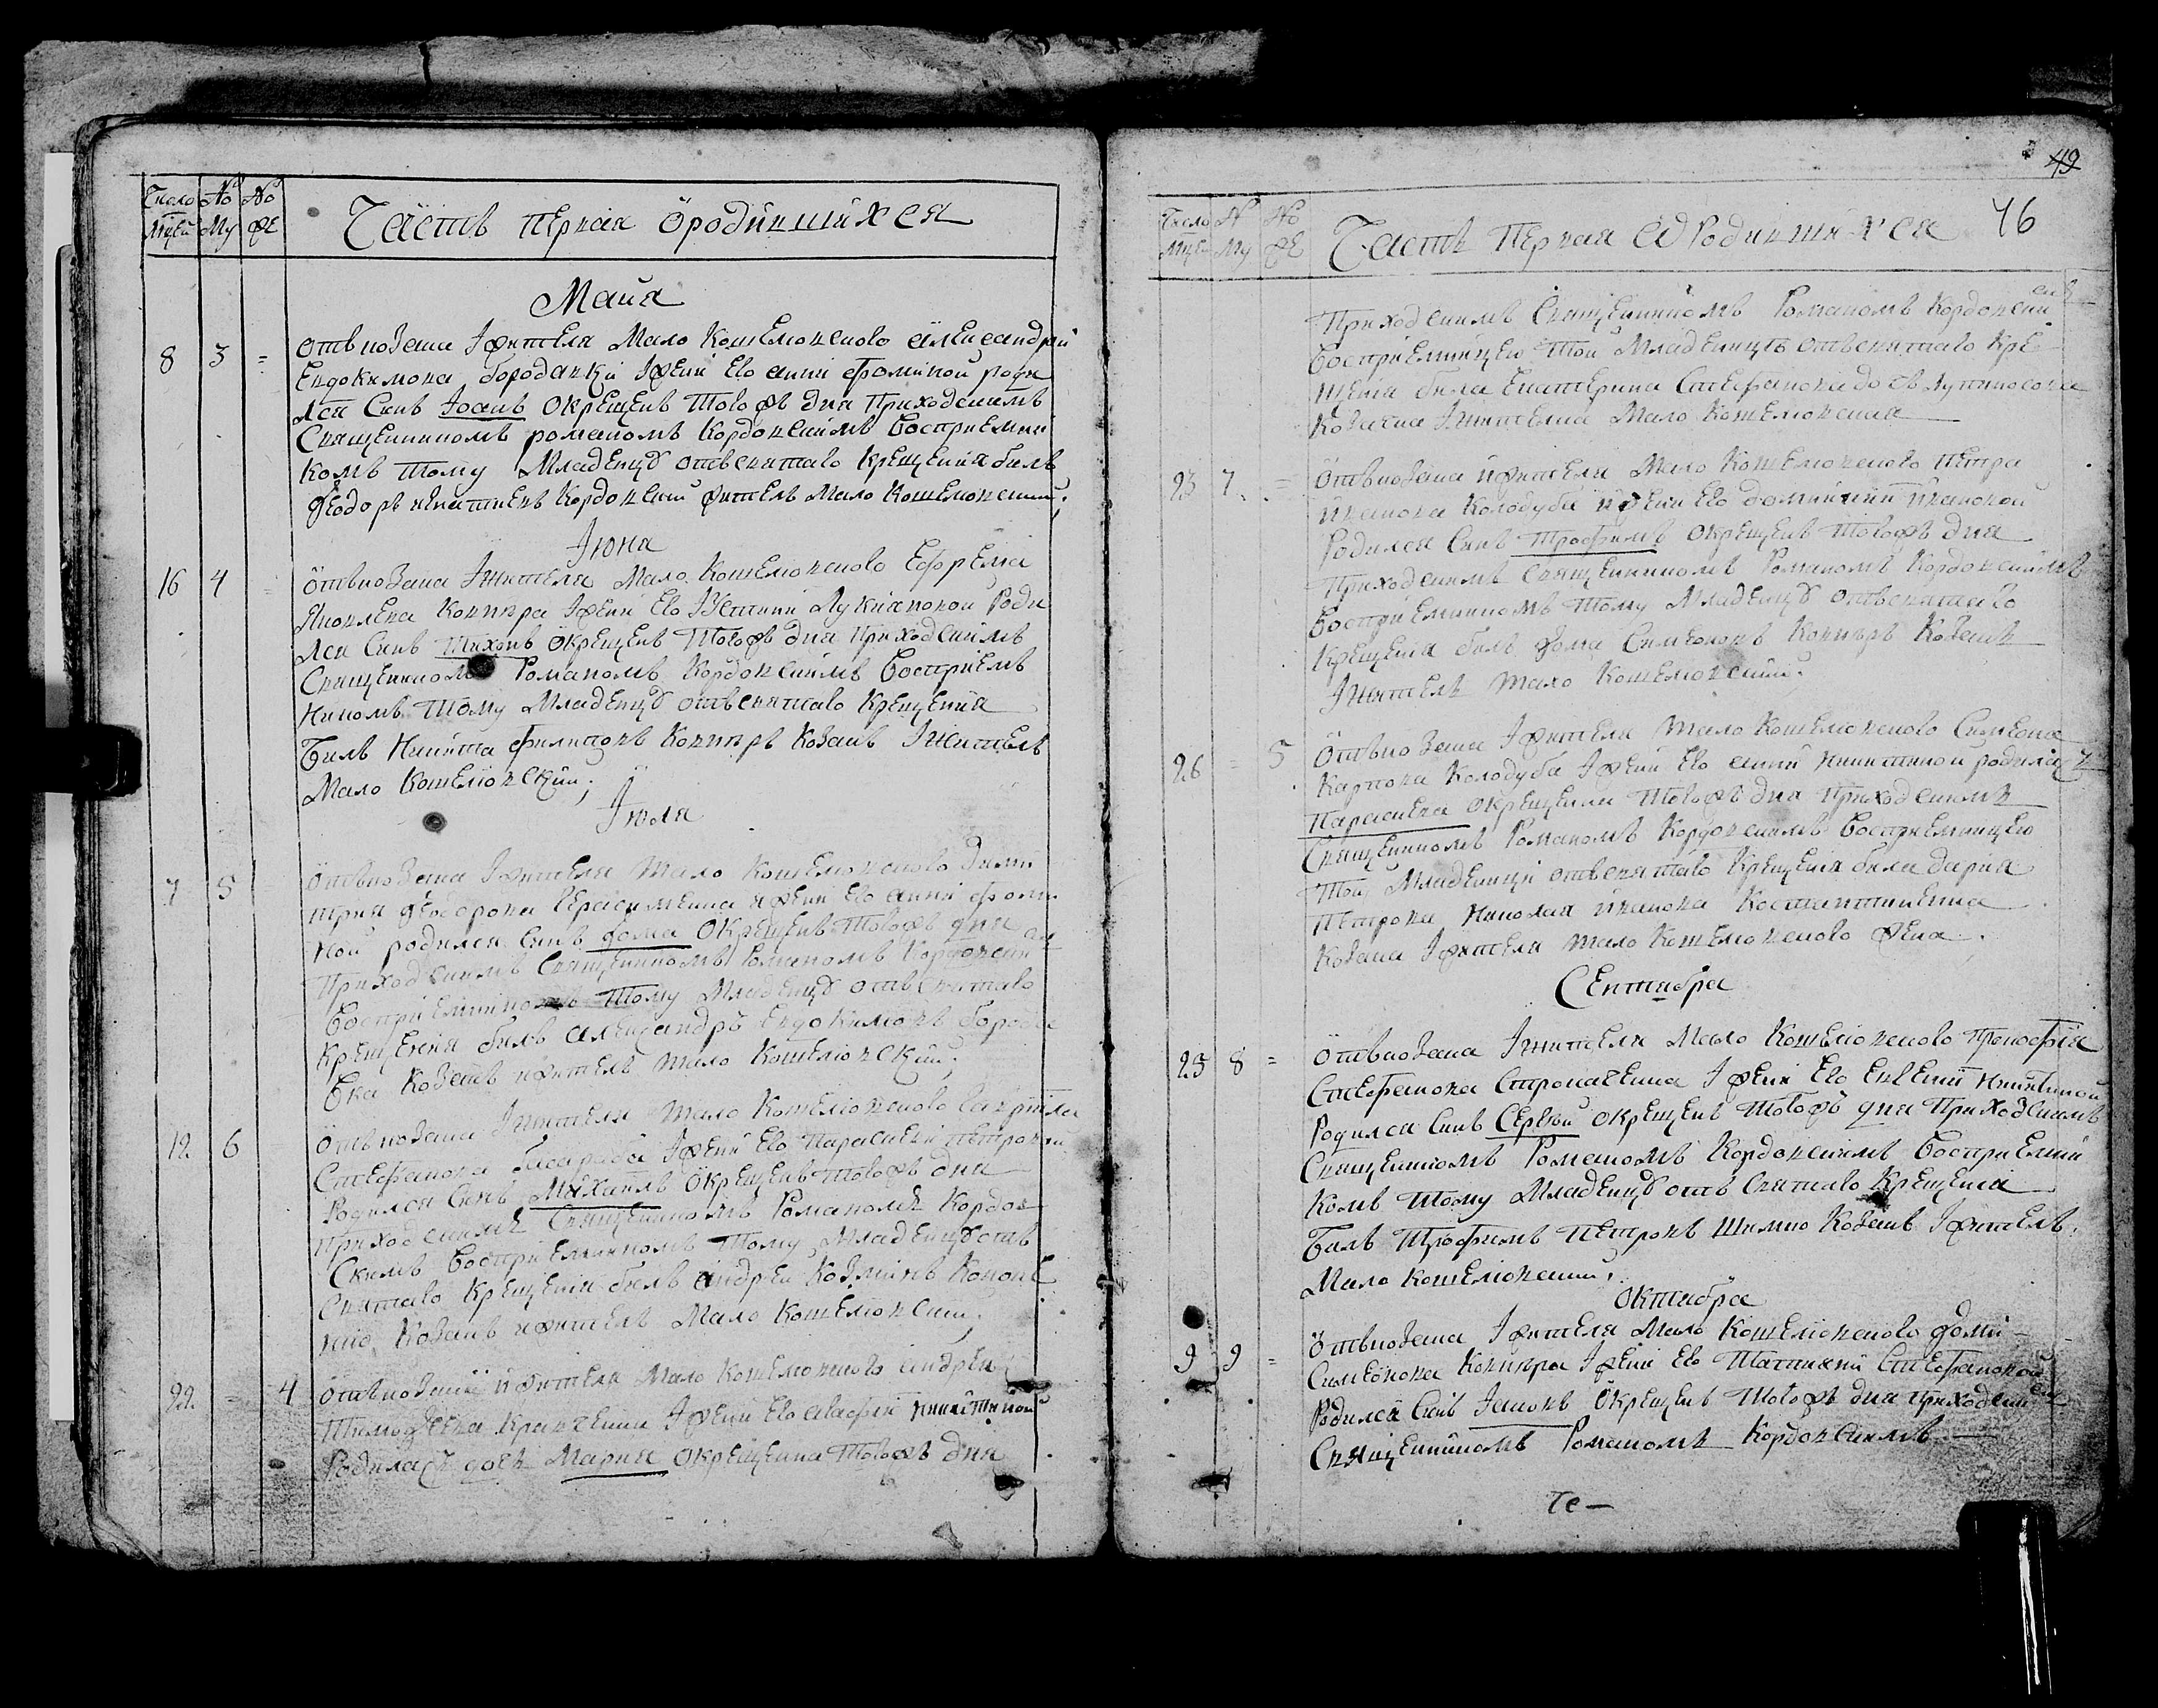 Число No No
Мцей Му Же
Часть первая о родившихся
Майа
8 3 = отъ козака і жителя Мало Кошелювского александри
Евдокимова бородавки і жени Его анни фоминой роди
лся Синъ Іоанъ окрещенъ того жъ дня Приходскимъ
Священникомъ романомъ Кордовскимъ воспрїемни
комъ тому Младенцу отъ святаго Крещения билъ
Феодоръ Кордовский житель Мало Кошелювский;
Іюня
16 4 = отъ козака І жителя Мало Кошелювского Ефрема
Яковлева Ковнѣра І жени Его Устинии Лукіановой Роди
лся Синъ Тихонъ окрещенъ того жъ дня приходскимъ
Священникомъ Романомъ Кордовскимъ воспрїем
никомъ тому Младенцу отъ святаго крещения
билъ Никита филиповъ Ковнѣръ Козакъ І житель
Мало Кошелювский;
Іюля
7 5 отъ козака І жителя Мало Кошелювского Дими
трия феодорова Герасименка и жени Его анни фоми
ной родился Синъ фома окрещенъ того жъ дня
приходскимъ Священникомъ Романомъ Кордовским
воспрїемникомъ тому Младенцу отъ святаго
крещения билъ александръ Евдокимовъ бородав
ка Козакъ и житель Мало Кошелювский;
12 6 отъ козака І жителя Мало Кошелювского гаврїила
Стефанова І жени Его Параскеви петровой
Родился Синъ Михаилъ окрещенъ того жъ дня
приходскимъ Священникомъ Романомъ Кордов
скимъ воспрїемникомъ тому Младенцу отъ
святаго крещения билъ андрей Козминъ
Козакъ и житель Мало Кошелювский;
22 = 4 отъ козака и жителя Мало Кошелювского андрея
Тимофеева Кравченка І жени Его агафїи никитиной
Родилась дочь Мария окрещенна того жъ дня
49
76
Число N No
Мцей Му Же
Часть Первая о Родившихся
Приходскимъ Священникомъ Романомъ Кордовскимъ
воспрїемницею той Младенцы отъ святаго Кре
щения била Екатерина Стефанова дочь
Козачка І жителка Мало Кошелювска
23 7 = отъ козака и жителя Мало Кошелювского петра
иванова Колодуба и жени Его домникии ивановой
Родился Синъ Трофимъ окрещенъ того жъ дня
приходскимъ Священникомъ Романомъ Кордовскимъ
воспрїемникомъ тому Младенцу отъ святаго
Крещения билъ фома Симеоновъ Ковнѣръ Козакъ
І житель Мало Кошелювский.
26 = 5 отъ козака І жителя Мало Кошелювского Симеона
Карпова Колодуба І жени Его анни Никитиной родилась
Параскева окрещенна того жъ дня Приходскимъ
Священникомъ Романомъ Кордовскимъ воспрїемницею
той Младенци отъ святаго Крещения била дария
Петрова Николая иванова Костантиненка
Козака І жителя Мало Кошелювского жена;
Сентября
25 8 = отъ козака І жителя Мало Кошелювского прокофїя
Стефанова І жени Его Евгении Никитиной
Родился Синъ Сергѣй окрещенъ того жъ дня приходскимъ
Священникомъ Романомъ Кордовскимъ воспрїемни
комъ тому Младенцу отъ Святаго Крещения
билъ Трофимъ петровъ Шимко Козакъ І житель
Мало Кошелювский.
октября
9 9 = отъ козака І жителя Мало Кошелювского фоми
Симеонова Ковнѣра І жени Его Татияни Стефановой
Родился Синъ Іаковъ окрещенъ того жъ дня приходским
Священникомъ Романомъ Кордовскимъ